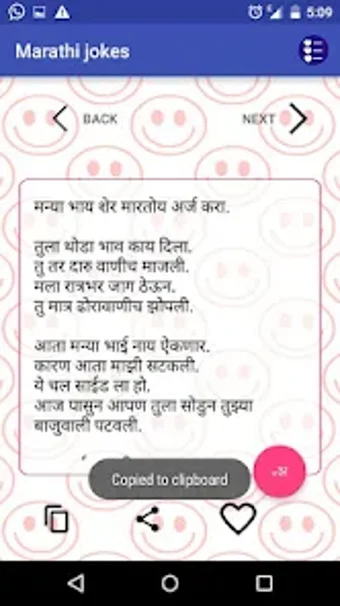 5:09
Marathi jokes
BACK
NEXT
मन्या भाय शेर मारतोय अर्ज करा.
तुला थोडा भाव काय दिला.
तु तर दारु वाणीच माजली.
मला रात्रभर जाग ठेऊन.
तु मात्र ढोरावाणीच झोपली.
आता मन्या भाई नाय ऐकणार.
कारण आता माझी सटकली.
ये चल साईड ला हो.
आज पासुन आपण तुला सोडुन तुझ्या
बाजुवाली पटवली.
Copied to clipboard